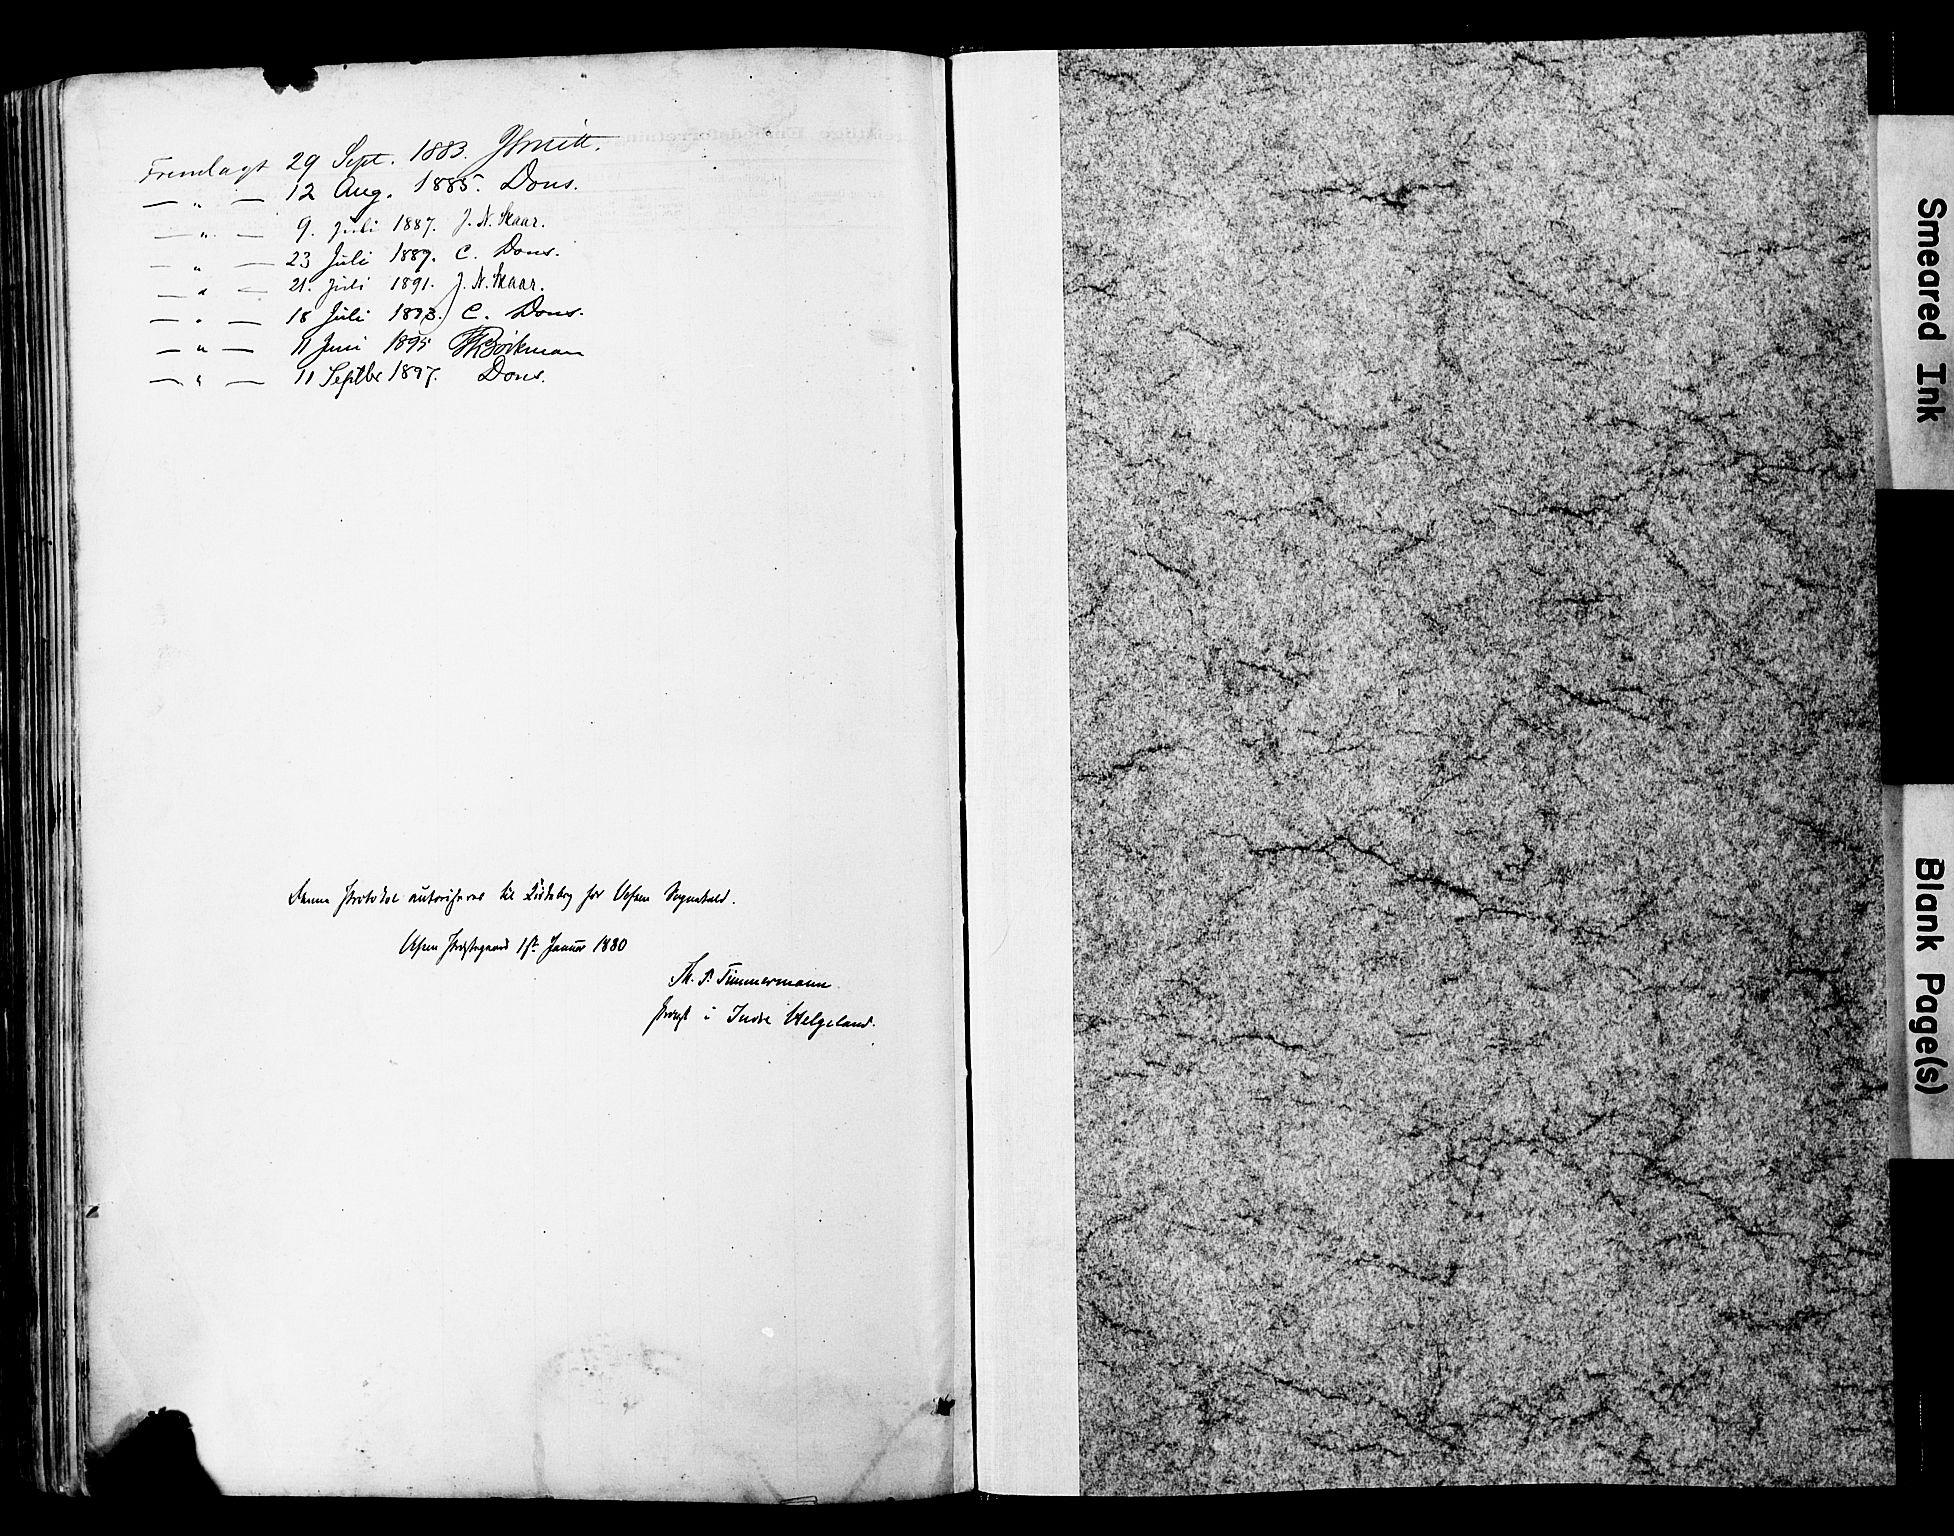 Fremlagt 29 Sept. 1883. Smitt.
— " — 12 Aug. 1885. Dons.
— " — 9. Juli 1887. J. N. Skaar.
— " — 23 Juli 1889. C. Dons.
— " — 21. Juli 1891. J. N. Skaar.
— " — 18 Juli 1893. C. Dons.
— " — 11 Juni 1895 Bøckman
— " — 11 Septbr 1897. Dons.
Denne Protokol autoriseres til Kirkebog for Vefsen Sognekald.
Vefsen Præstegaard 1ste Januar 1880
Th. P. Timmermann
Provst i Indre Helgeland.
Smeared Ink
Blank Page(s)